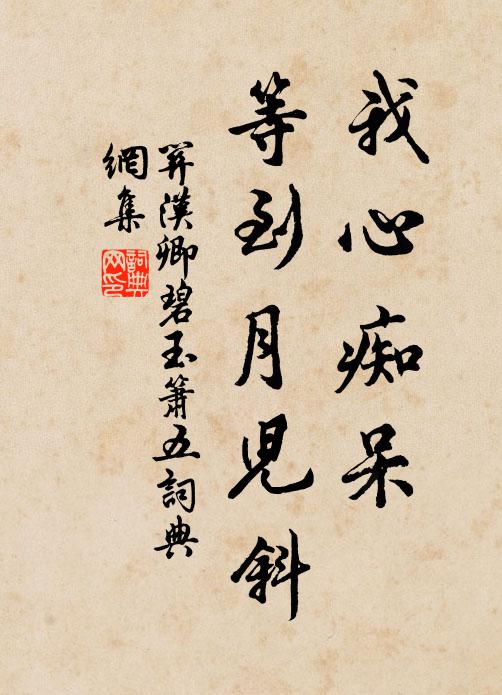 我心痴呆
等到月兒斜
関漢卿碧玉簫五詞典
網集
詞典
网印